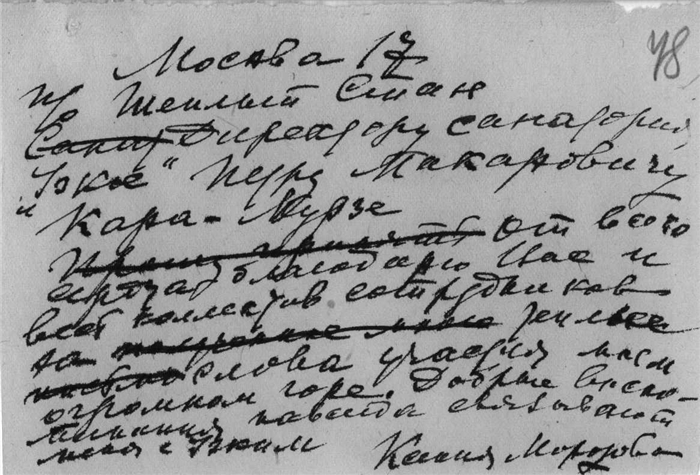 48
Москва 17
п/о Теплый Стан
Сана Директору санатория
"Узкое" Петру Макаровичу
Кара-Мурзе
Прошу принять от всего
сердца благодарю Вас и
весь коллектив сотрудников
за полученные мною теплые
слова участия моем
огромном горе. Добрые воспо-
минания навсегда связывают
меня с Узким Ксения Морозова